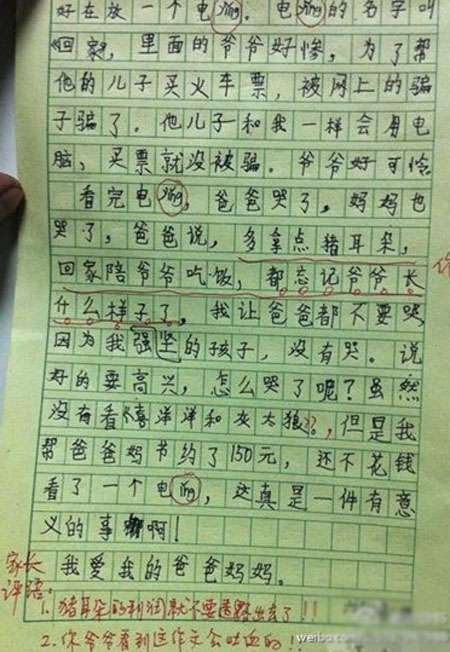 好在放一个电ying。电ying的名字叫
回家，里面的爷爷好惨，为了帮
他的儿子买火车票，被网上的骗
子骗了。他儿子和我一样会用电
脑，买票就没被骗。爷爷好可怜
看完电ying，爸爸哭了，妈妈也
哭了，爸爸说，多拿点猪耳朵，
回家陪爷爷吃饭，都忘记爷爷长
什么样子了。我让爸爸都不要哭
因为我强坚的孩子，没有哭。说
好的要高兴，怎么哭了呢？虽然
没有看喜洋洋和灰太狼，但是我
帮爸爸妈节约了150元，还不花钱
看了一个电ying，这真是一件有意
义的事啊！
我爱我的爸爸妈妈。
家长
评语：
1.猪耳朵的利润就不要透露出去了！！
2.你爷爷看到这作文会吐血的！！
weibo.com